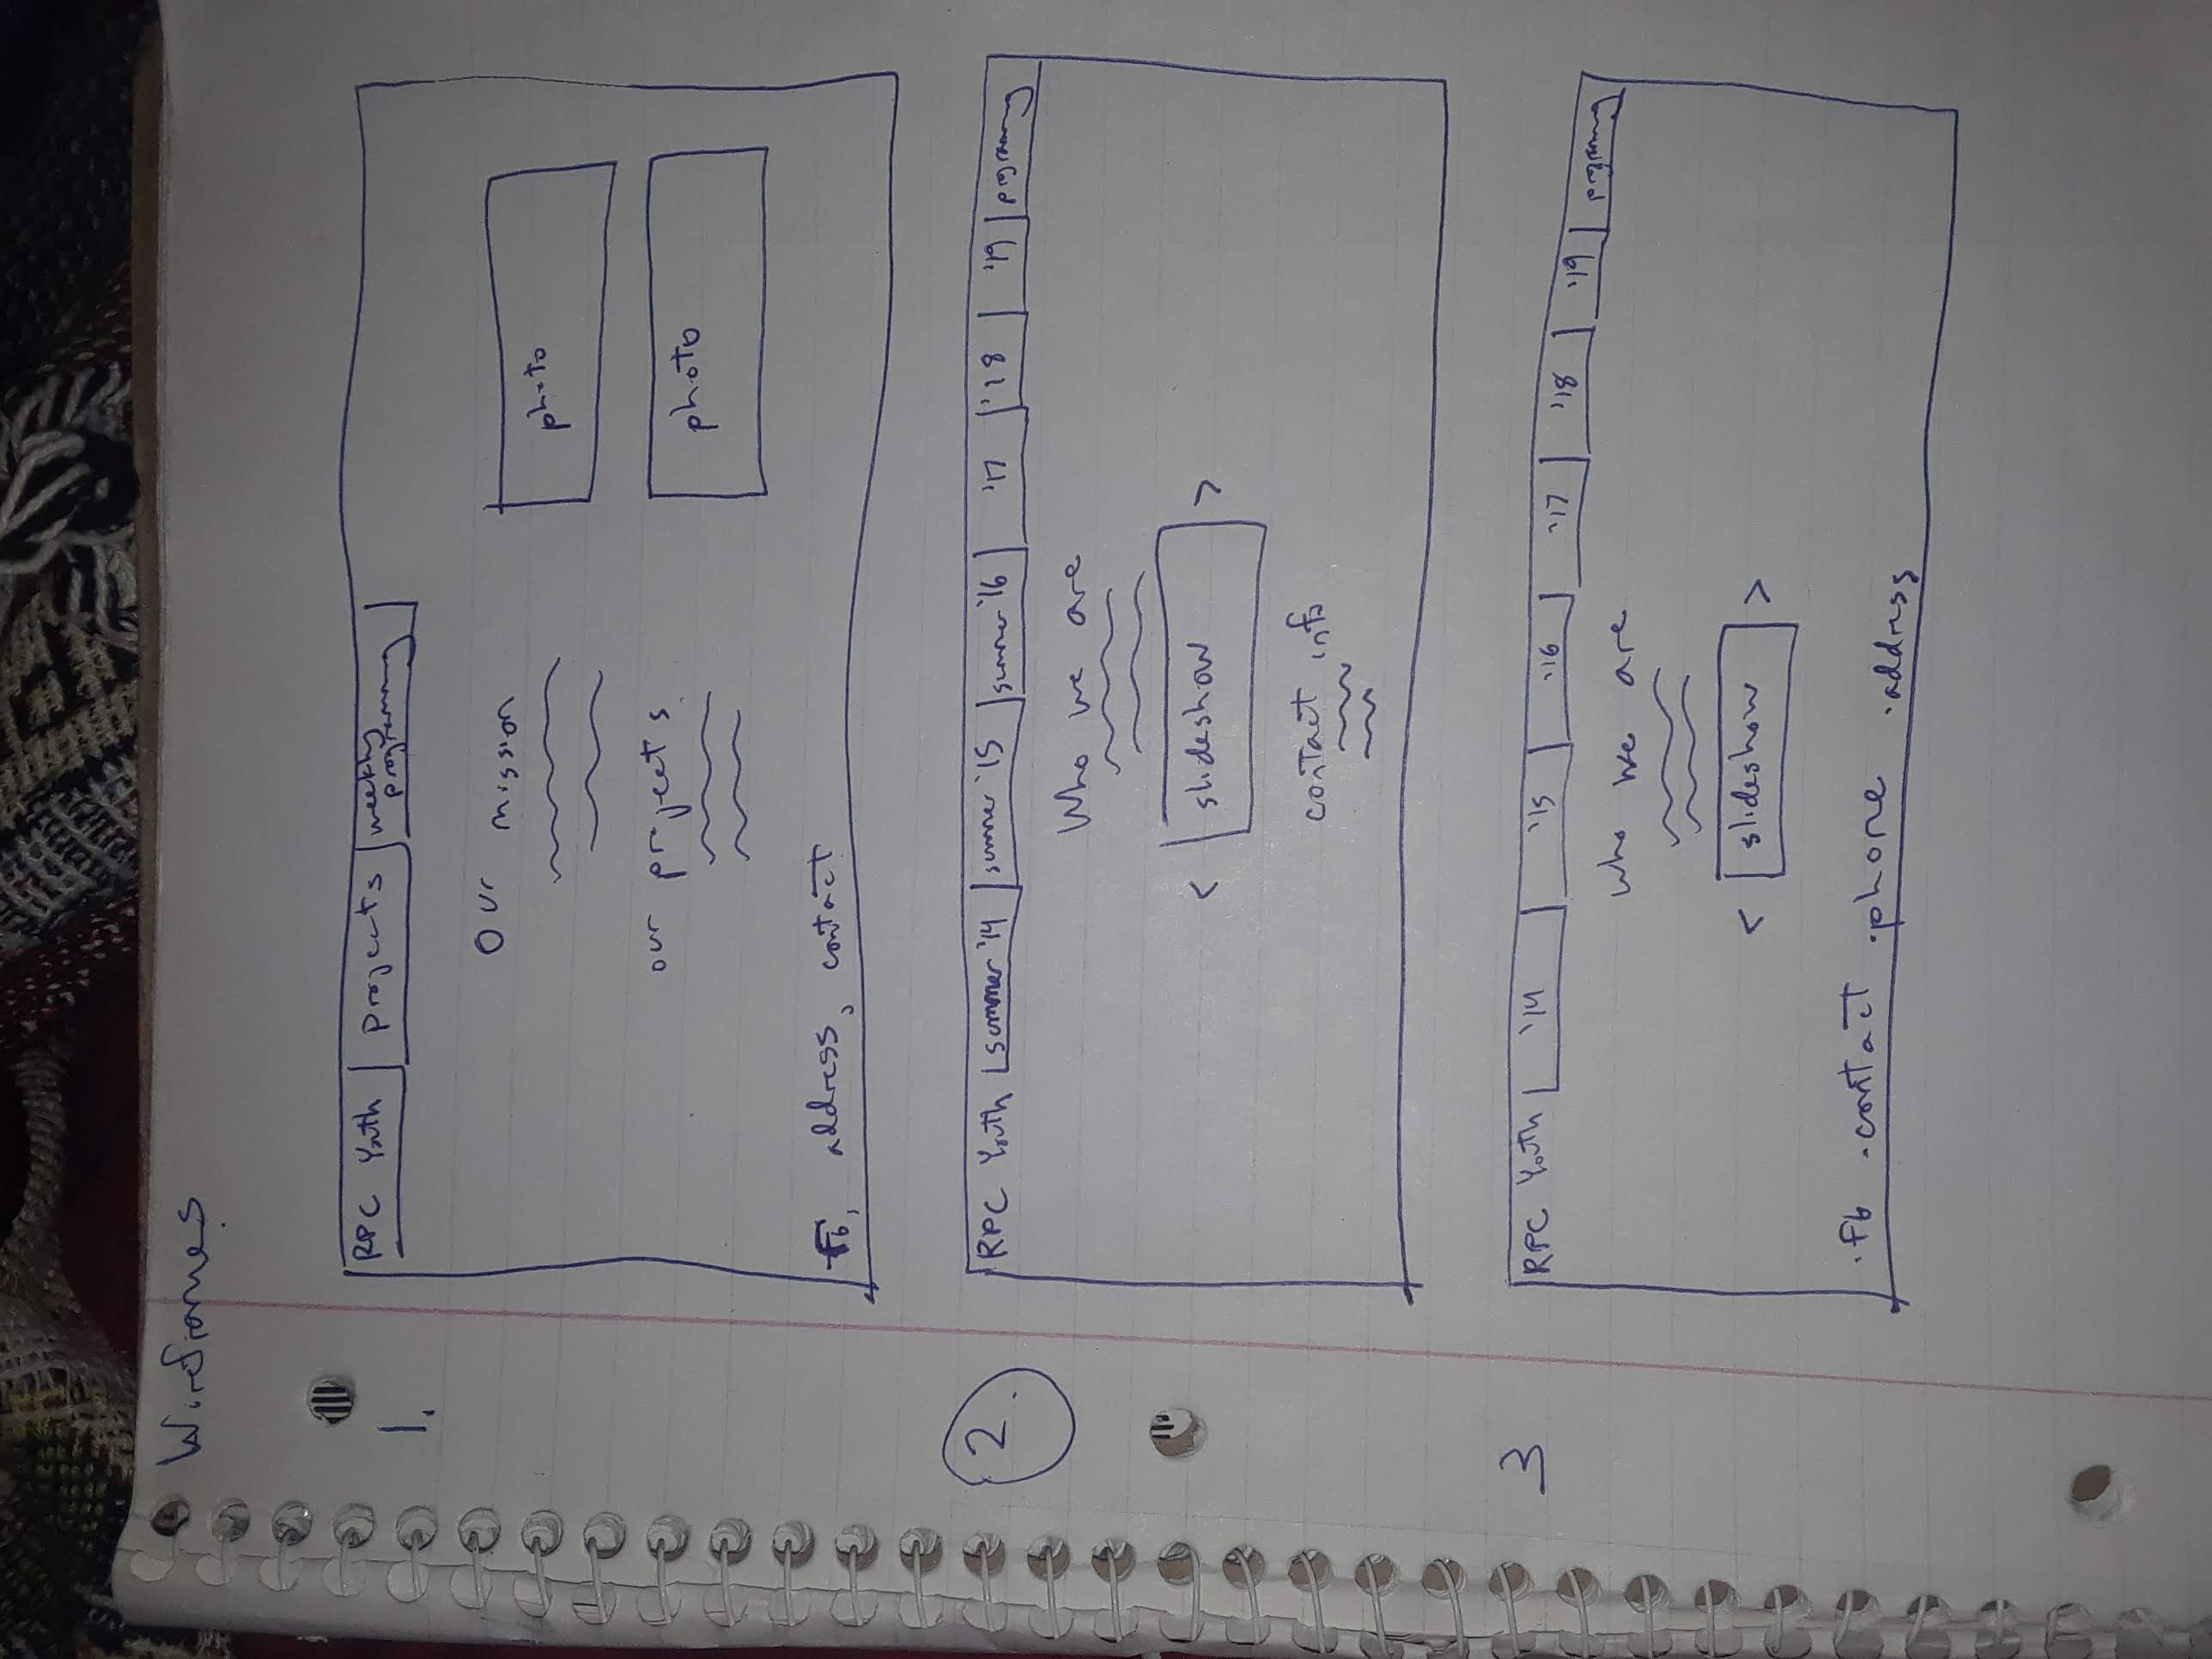 Wireframes
1.
RPC Youth projects weekly programming
Our mission
photo
our projects
photo
fb, address, contact
2.
RPC Youth summer '14 summer '15 summer '16 '17 '18 '19 programming
Who we are
< slideshow >
contact info
3
RPC Youth '14 '15 '16 '17 '18 '19 programming
who we are
< slideshow >
.fb .contact .phone .address